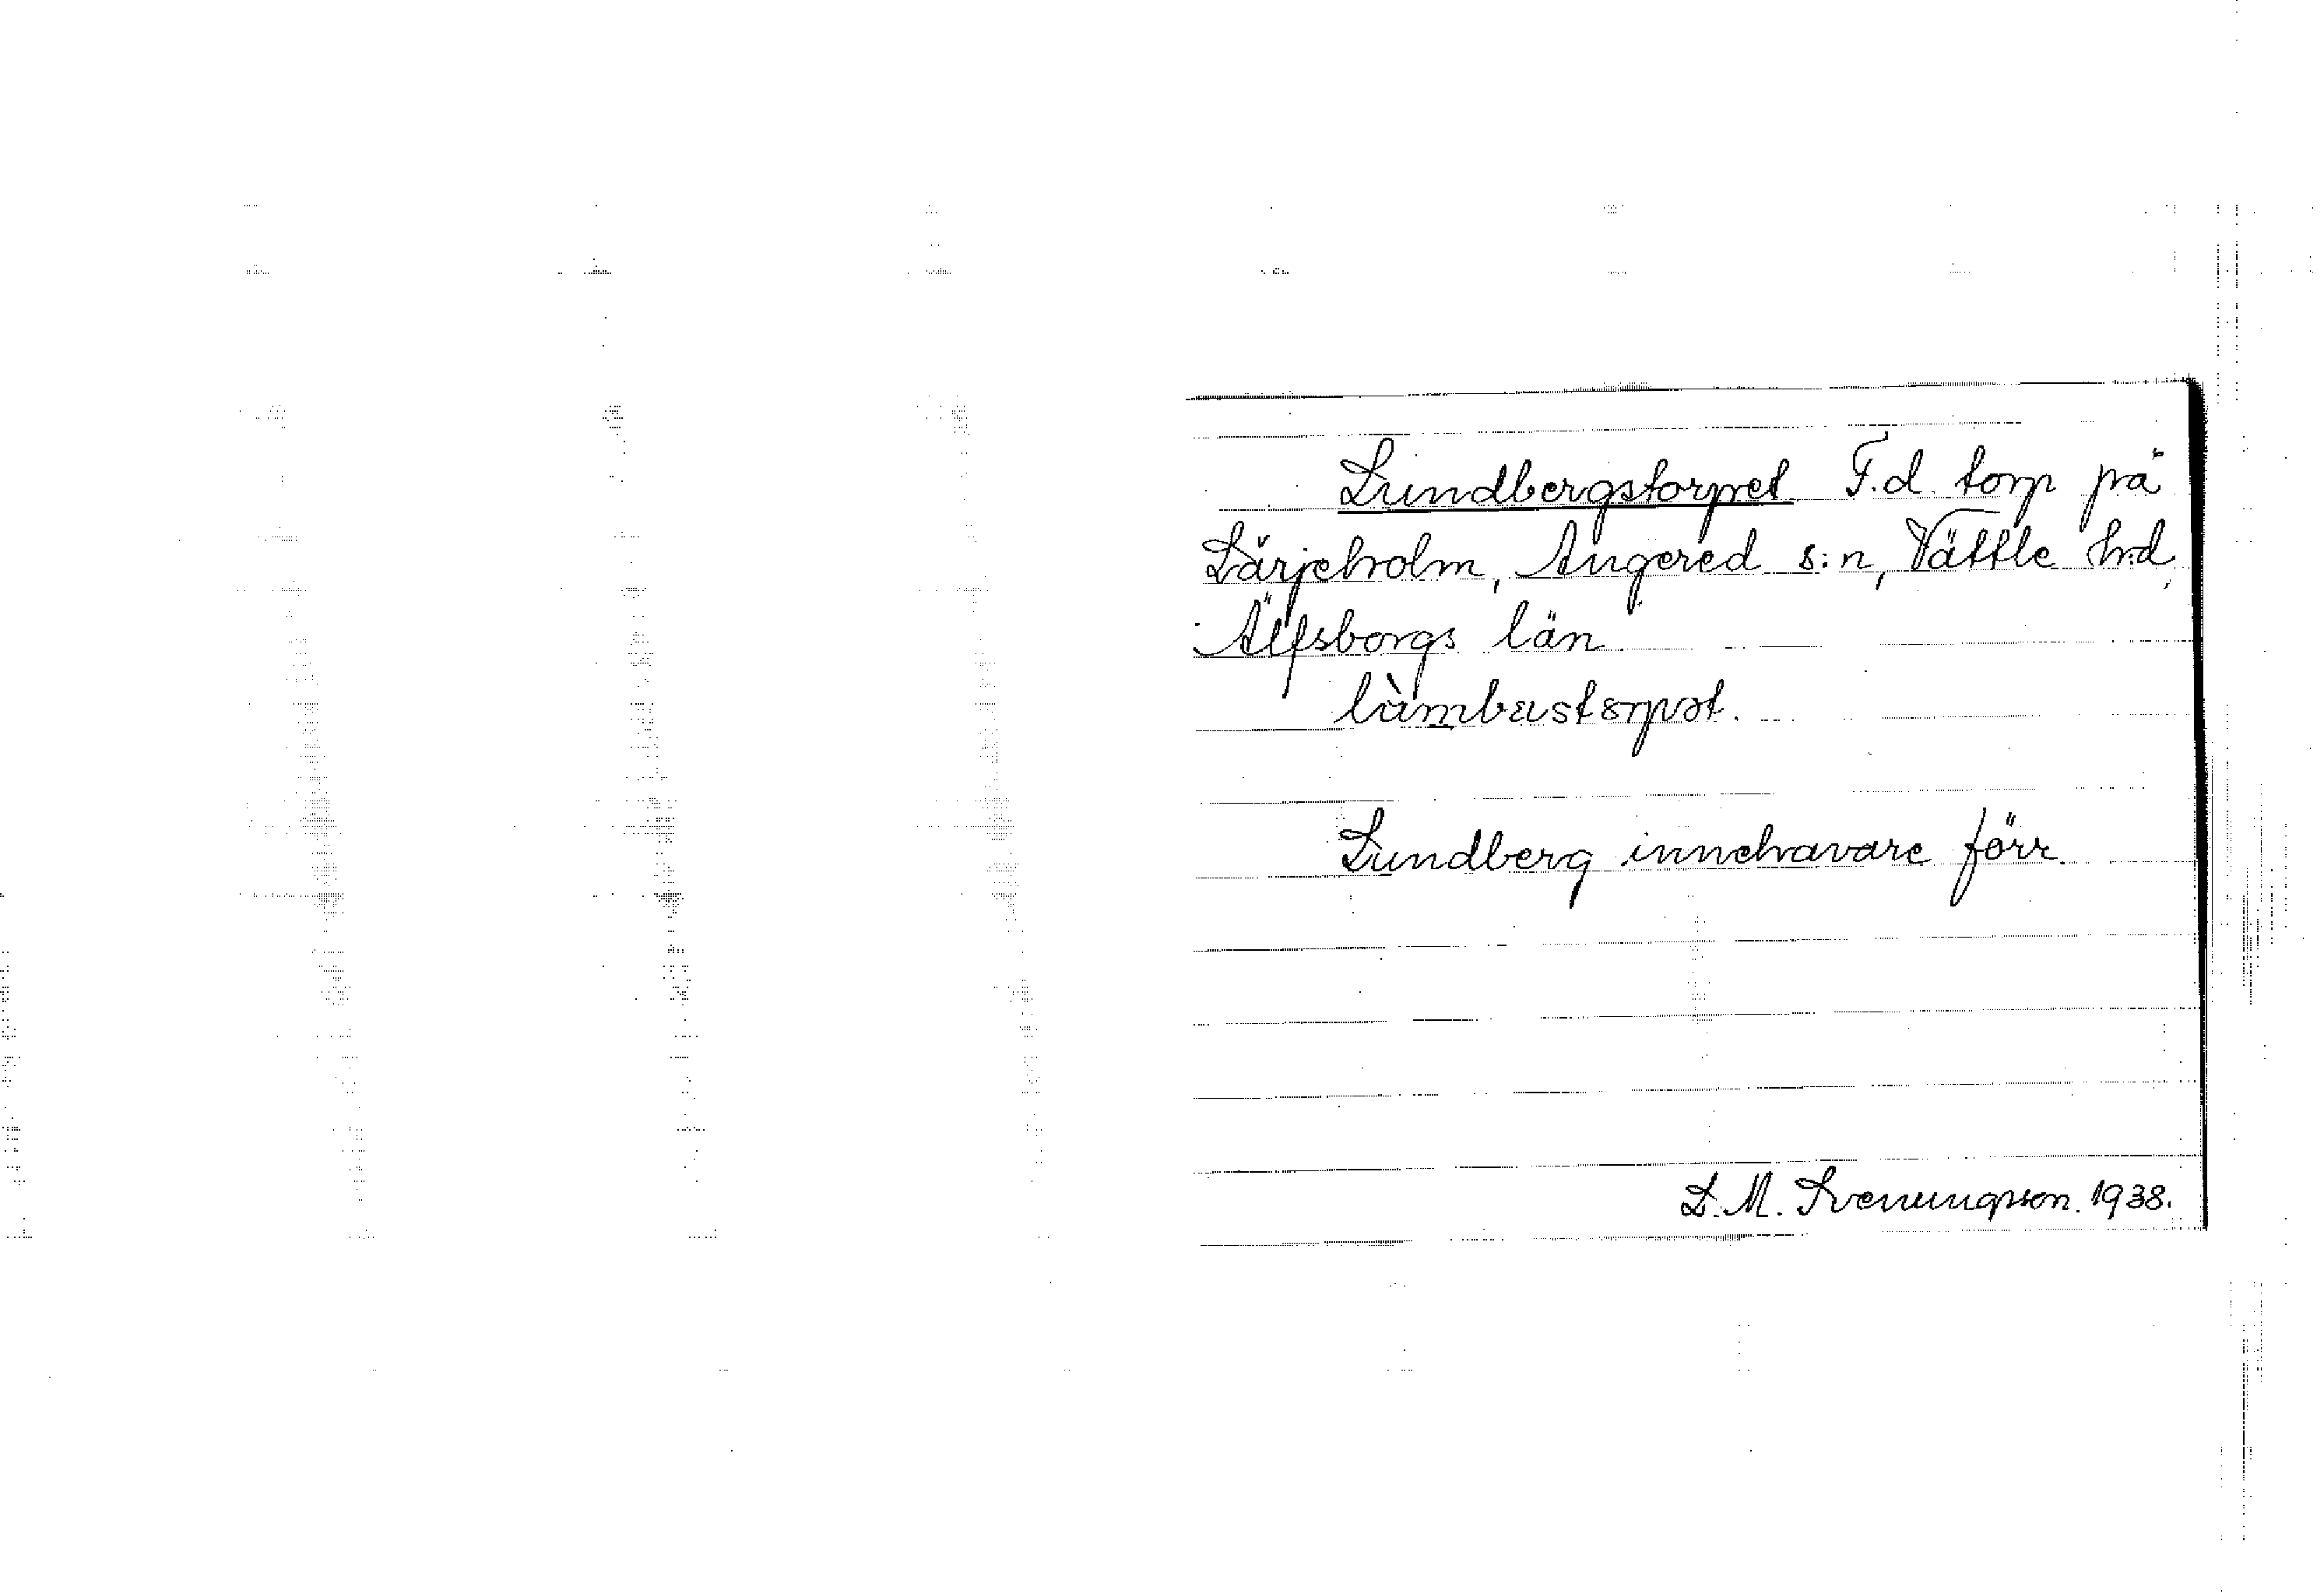 Lundbergstorpet. F.d. torp på
Lärjeholm, Angered s:n, Vättle h:d,
Älfsborgs län.
lùmbæstorpət.
Lundberg innehavare förr.
L. M. Svenungsson. 1938.